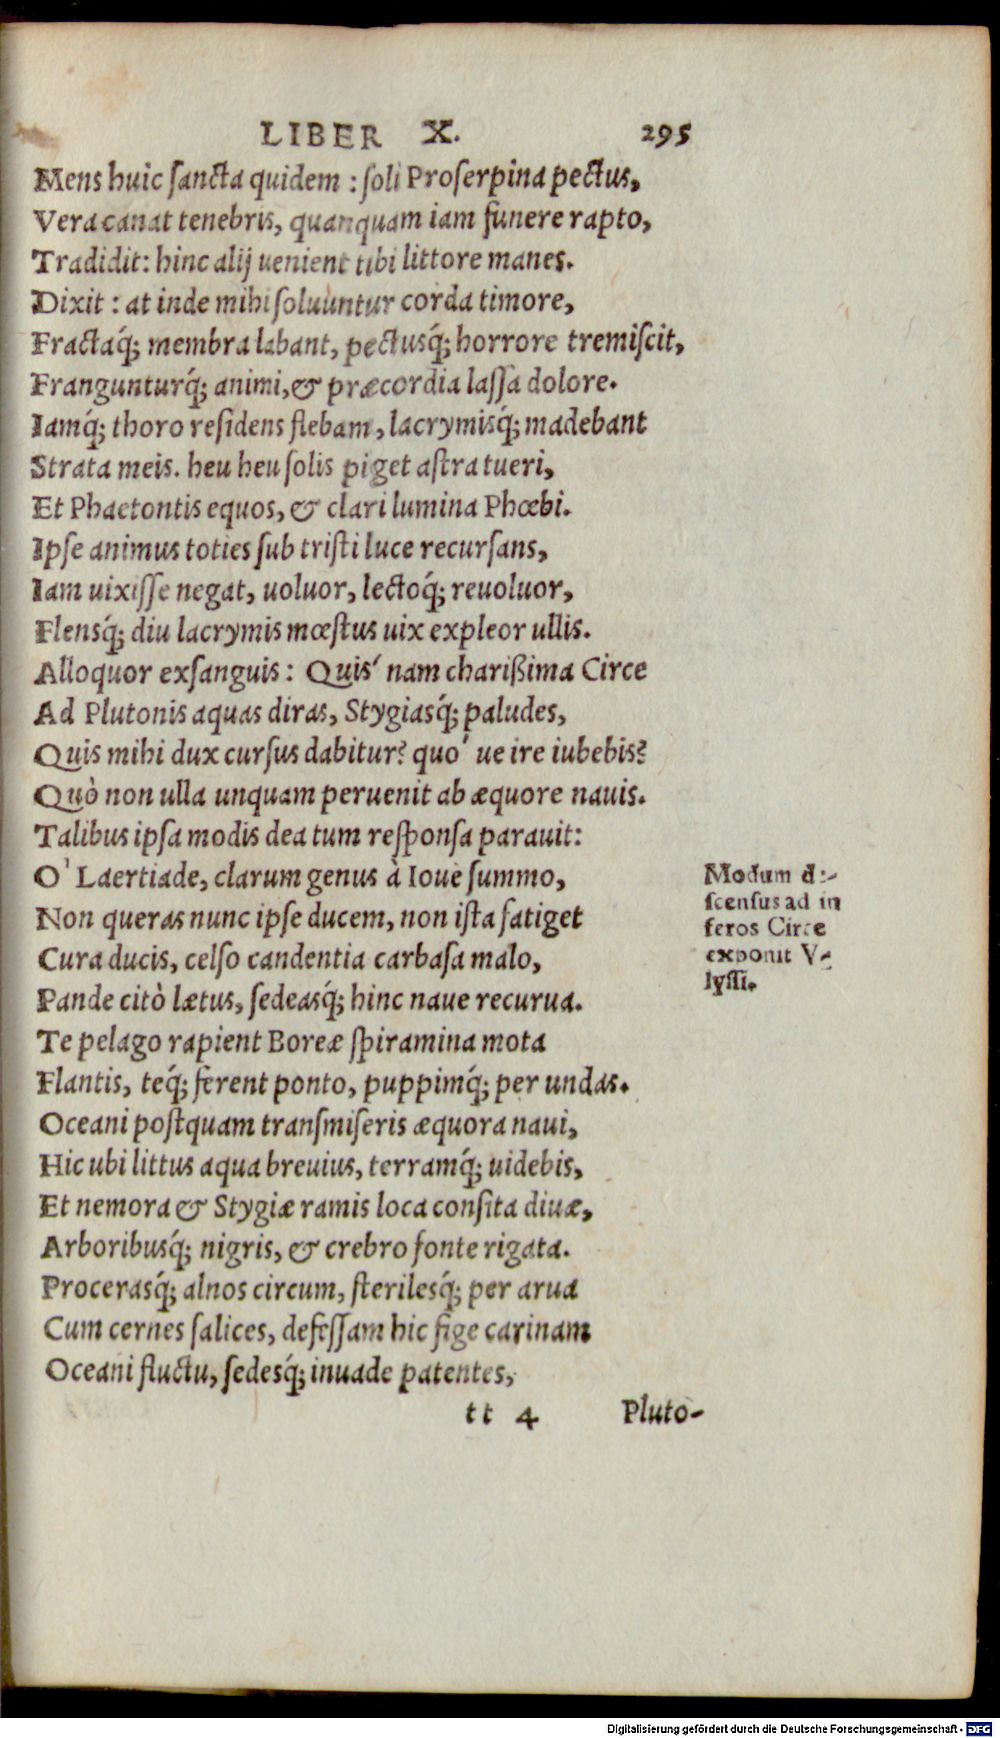 LIBER X. 295
Mens huic ſancta quidem : ſoli Proſerpina pectus,
Vera canat tenebris, quanquam iam funere rapto,
Tradidit: hinc alij uenient tibi littore manes.
Dixit : at inde mihi ſoluuntur corda timore,
Fractaq́; membra labant, pectusq́; horrore tremiſcit,
Frangunturq́; animi, & præcordia laſſa dolore.
Iamq́; thoro reſidens flebam, lacrymisq́; madebant
Strata meis. heu heu ſolis piget aſtra tueri,
Et Phaetontis equos, & clari lumina Phœbi.
Ipſe animus toties ſub triſti luce recurſans,
Iam uixiſſe negat, uoluor, lectoq́; reuoluor,
Flensq́; diu lacrymis mœſtus uix expleor ullis.
Alloquor exſanguis : Quis' nam charißima Circe
Ad Plutonis aquas diras, Stygiasq́; paludes,
Quis mihi dux curſus dabitur? quo' ue ire iubebis?
Quò non ulla unquam peruenit ab æquore nauis.
Talibus ipſa modis dea tum reſponſa parauit:
O' Laertiade, clarum genus à Ioue ſummo,
Non queras nunc ipſe ducem, non iſta fatiget
Cura ducis, celſo candentia carbaſa malo,
Pande citò lætus, ſedeasq́; hinc naue recurua.
Te pelago rapient Boreæ ſpiramina mota
Flantis, teq́; ferent ponto, puppimq́; per undas.
Oceani poſtquam tranſmiſeris æquora naui,
Hic ubi littus aqua breuius, terramq́; uidebis,
Et nemora & Stygiæ ramis loca conſita diuæ,
Arboribusq́; nigris, & crebro fonte rigata.
Procerasq́; alnos circum, ſterilesq́; per arua
Cum cernes ſalices, defeſſam hic fige carinam
Oceani fluctu, ſedesq́; inuade patentes,
tt 4 Pluto-
Modum de-
ſcenſus ad in
feros Circe
exponit V-
lyſſi.
Digitalisierung gefördert durch die Deutsche Forschungsgemeinschaft - DFG